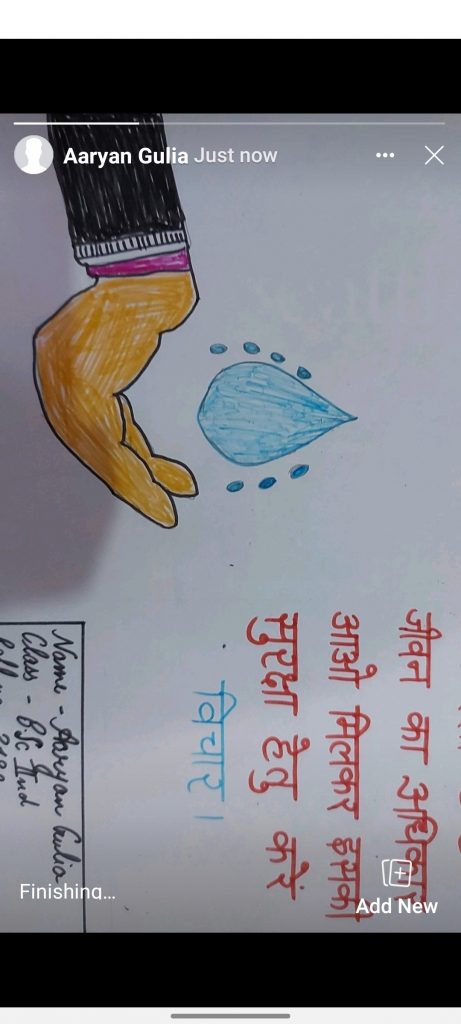 Aaryan Gulia Just now
जीवन का अधिकार
आओ मिलकर इसकी
सुरक्षा हेतु करें
विचार।
Name - Aaryan Gulia
Class - BSc IInd
Finishing...
Add New